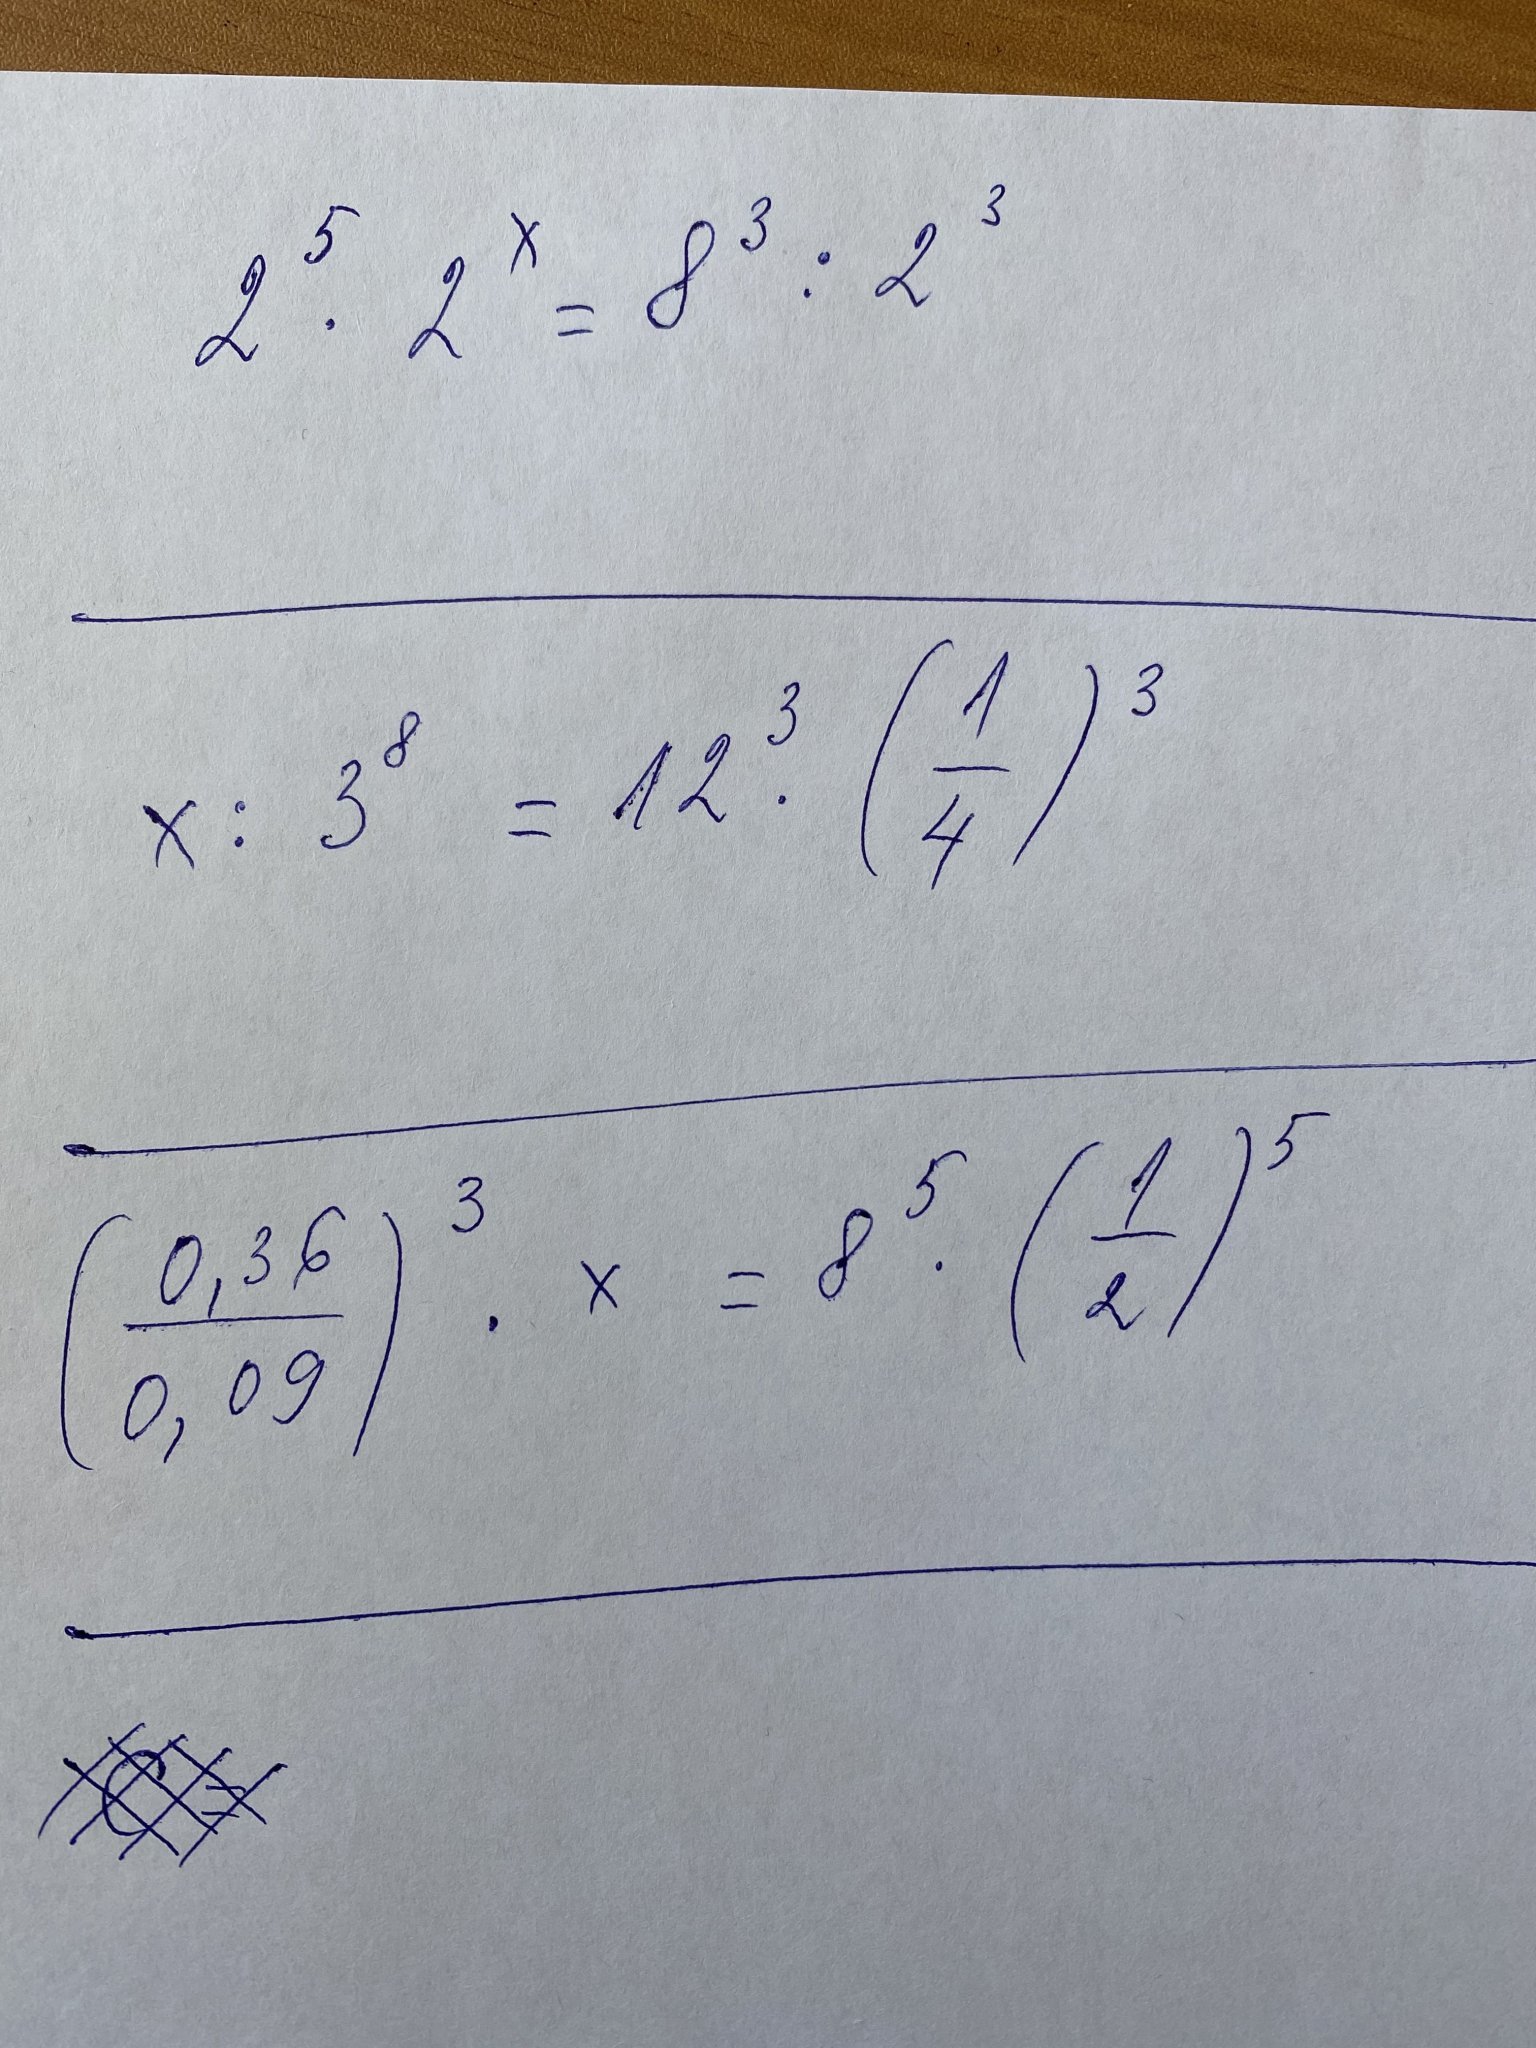 2⁵ · 2ˣ = 8³ : 2³
x : 3⁸ = 12³ · (1/4)³
(0,36/0,09)³ · x = 8⁵ · (1/2)⁵